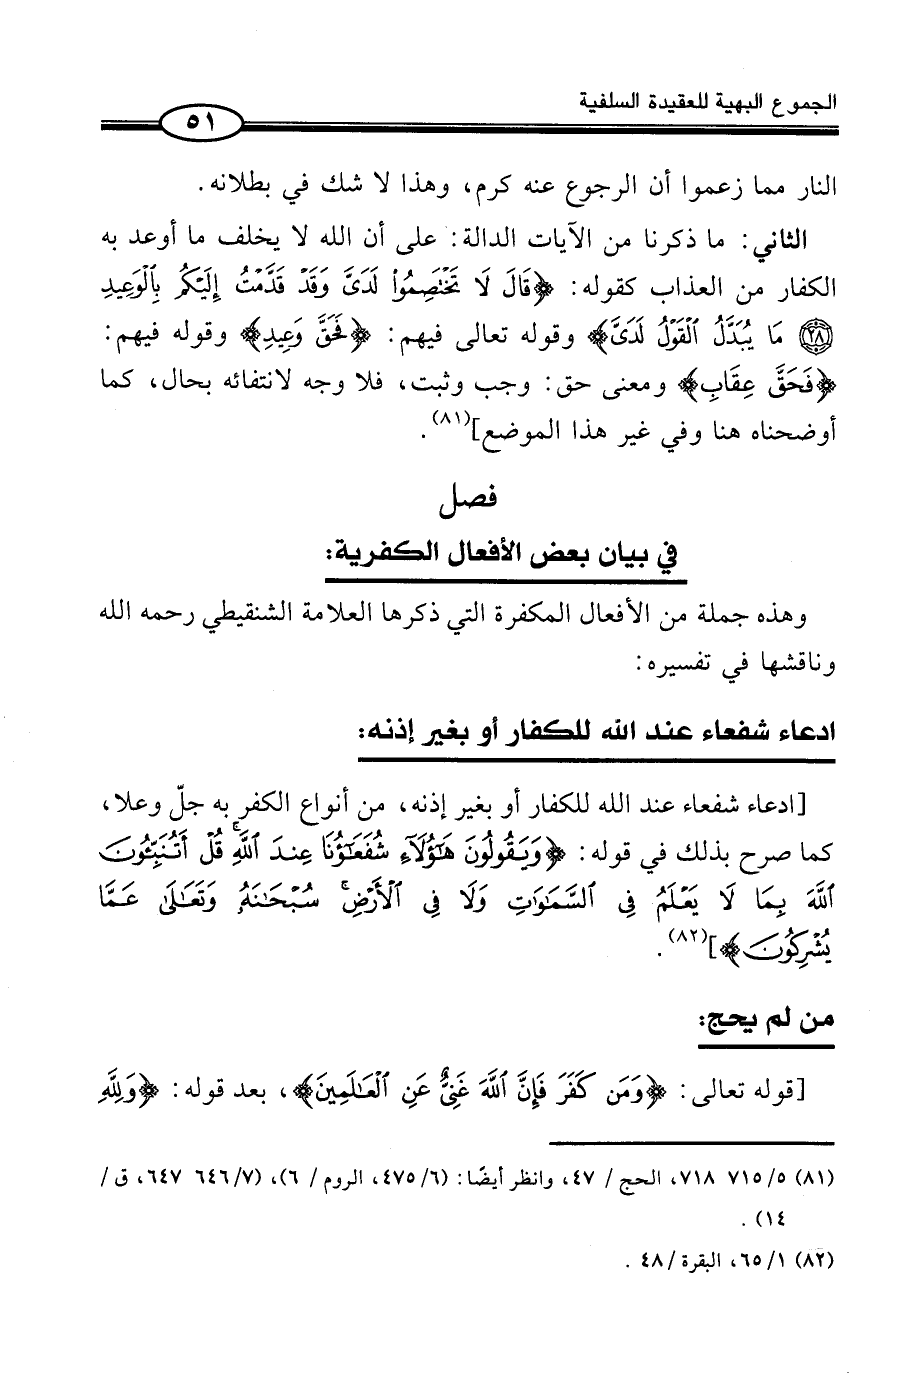 الجموع البهية للعقيدة السلفية
٥١
النار مما زعموا أن الرجوع عنه كرم، وهذا لا شك في بطلانه.
الثاني: ما ذكرنا من الآيات الدالة: على أن الله لا يخلف ما أوعد به
الكفار من العذاب كقوله: ﴿قَالَ لَا تَخْتَصِمُوا۟ لَدَىَّ وَقَدْ قَدَّمْتُ إِلَيْكُم بِٱلْوَعِيدِ
(٢٨) مَا يُبَدَّلُ ٱلْقَوْلُ لَدَىَّ﴾ وقوله تعالى فيهم: ﴿فَحَقَّ وَعِيدِ﴾ وقوله فيهم:
﴿فَحَقَّ عِقَابِ﴾ ومعنى حق: وجب وثبت، فلا وجه لانتفائه بحال، كما
أوضحناه هنا وفي غير هذا الموضع](٨١).
فصل
في بيان بعض الأفعال الكفرية:
وهذه جملة من الأفعال المكفرة التي ذكرها العلامة الشنقيطي رحمه الله
وناقشها في تفسيره:
ادعاء شفعاء عند الله للكفار أو بغير إذنه:
[ادعاء شفعاء عند الله للكفار أو بغير إذنه، من أنواع الكفر به جلّ وعلا،
كما صرح بذلك في قوله: ﴿وَيَقُولُونَ هَـٰٓؤُلَآءِ شُفَعَـٰٓؤُنَا عِندَ ٱللَّهِ ۚ قُلْ أَتُنَبِّـُٔونَ
ٱللَّهَ بِمَا لَا يَعْلَمُ فِى ٱلسَّمَـٰوَٰتِ وَلَا فِى ٱلْأَرْضِ ۚ سُبْحَـٰنَهُۥ وَتَعَـٰلَىٰ عَمَّا
يُشْرِكُونَ﴾](٨٢).
من لم يحج:
[قوله تعالى: ﴿وَمَن كَفَرَ فَإِنَّ ٱللَّهَ غَنِىٌّ عَنِ ٱلْعَـٰلَمِينَ﴾، بعد قوله: ﴿وَلِلَّهِ
(٨١) ٧١٥/٥ ٧١٨، الحج / ٤٧، وانظر أيضًا: (٤٧٥/٦، الروم / ٦)، (٦٤٦/٧ ٦٤٧، ق /
١٤) .
(٨٢) ٦٥/١، البقرة/٤٨ .